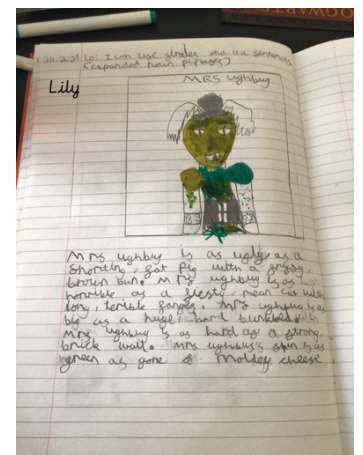 HOGWARTS
LO: I can use similes and 2A sentences
(expanded noun phrases)
Lily
MRS Ughbug
Mrs ughbug is as ugly as a
Snorting, fat pig with a frizzy,
brown bun. Mrs ughbug is as
horrible as a fiesty, mean cat with
long, terible fanges. Mrs ughbug is as
big as a huge, hard
Mrs ughbug is as hard as a strong,
brick wall. Mrs ughbug's skin is as
green as gone of Moldey cheese